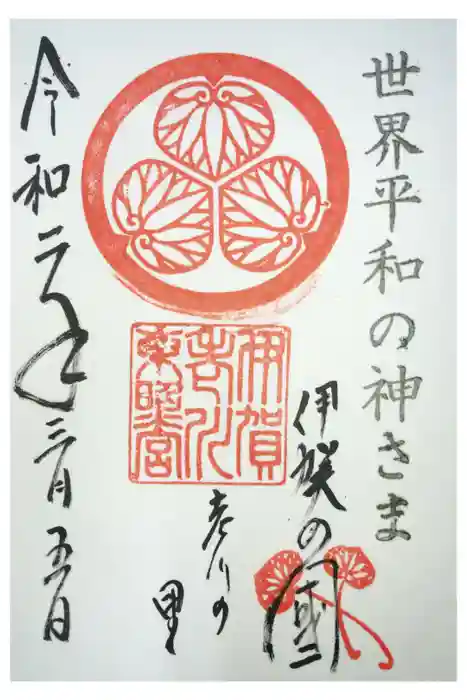 世界平和の神さま
伊賀の国
老川の
里
伊賀
老川
東照宮
令和二年三月五日